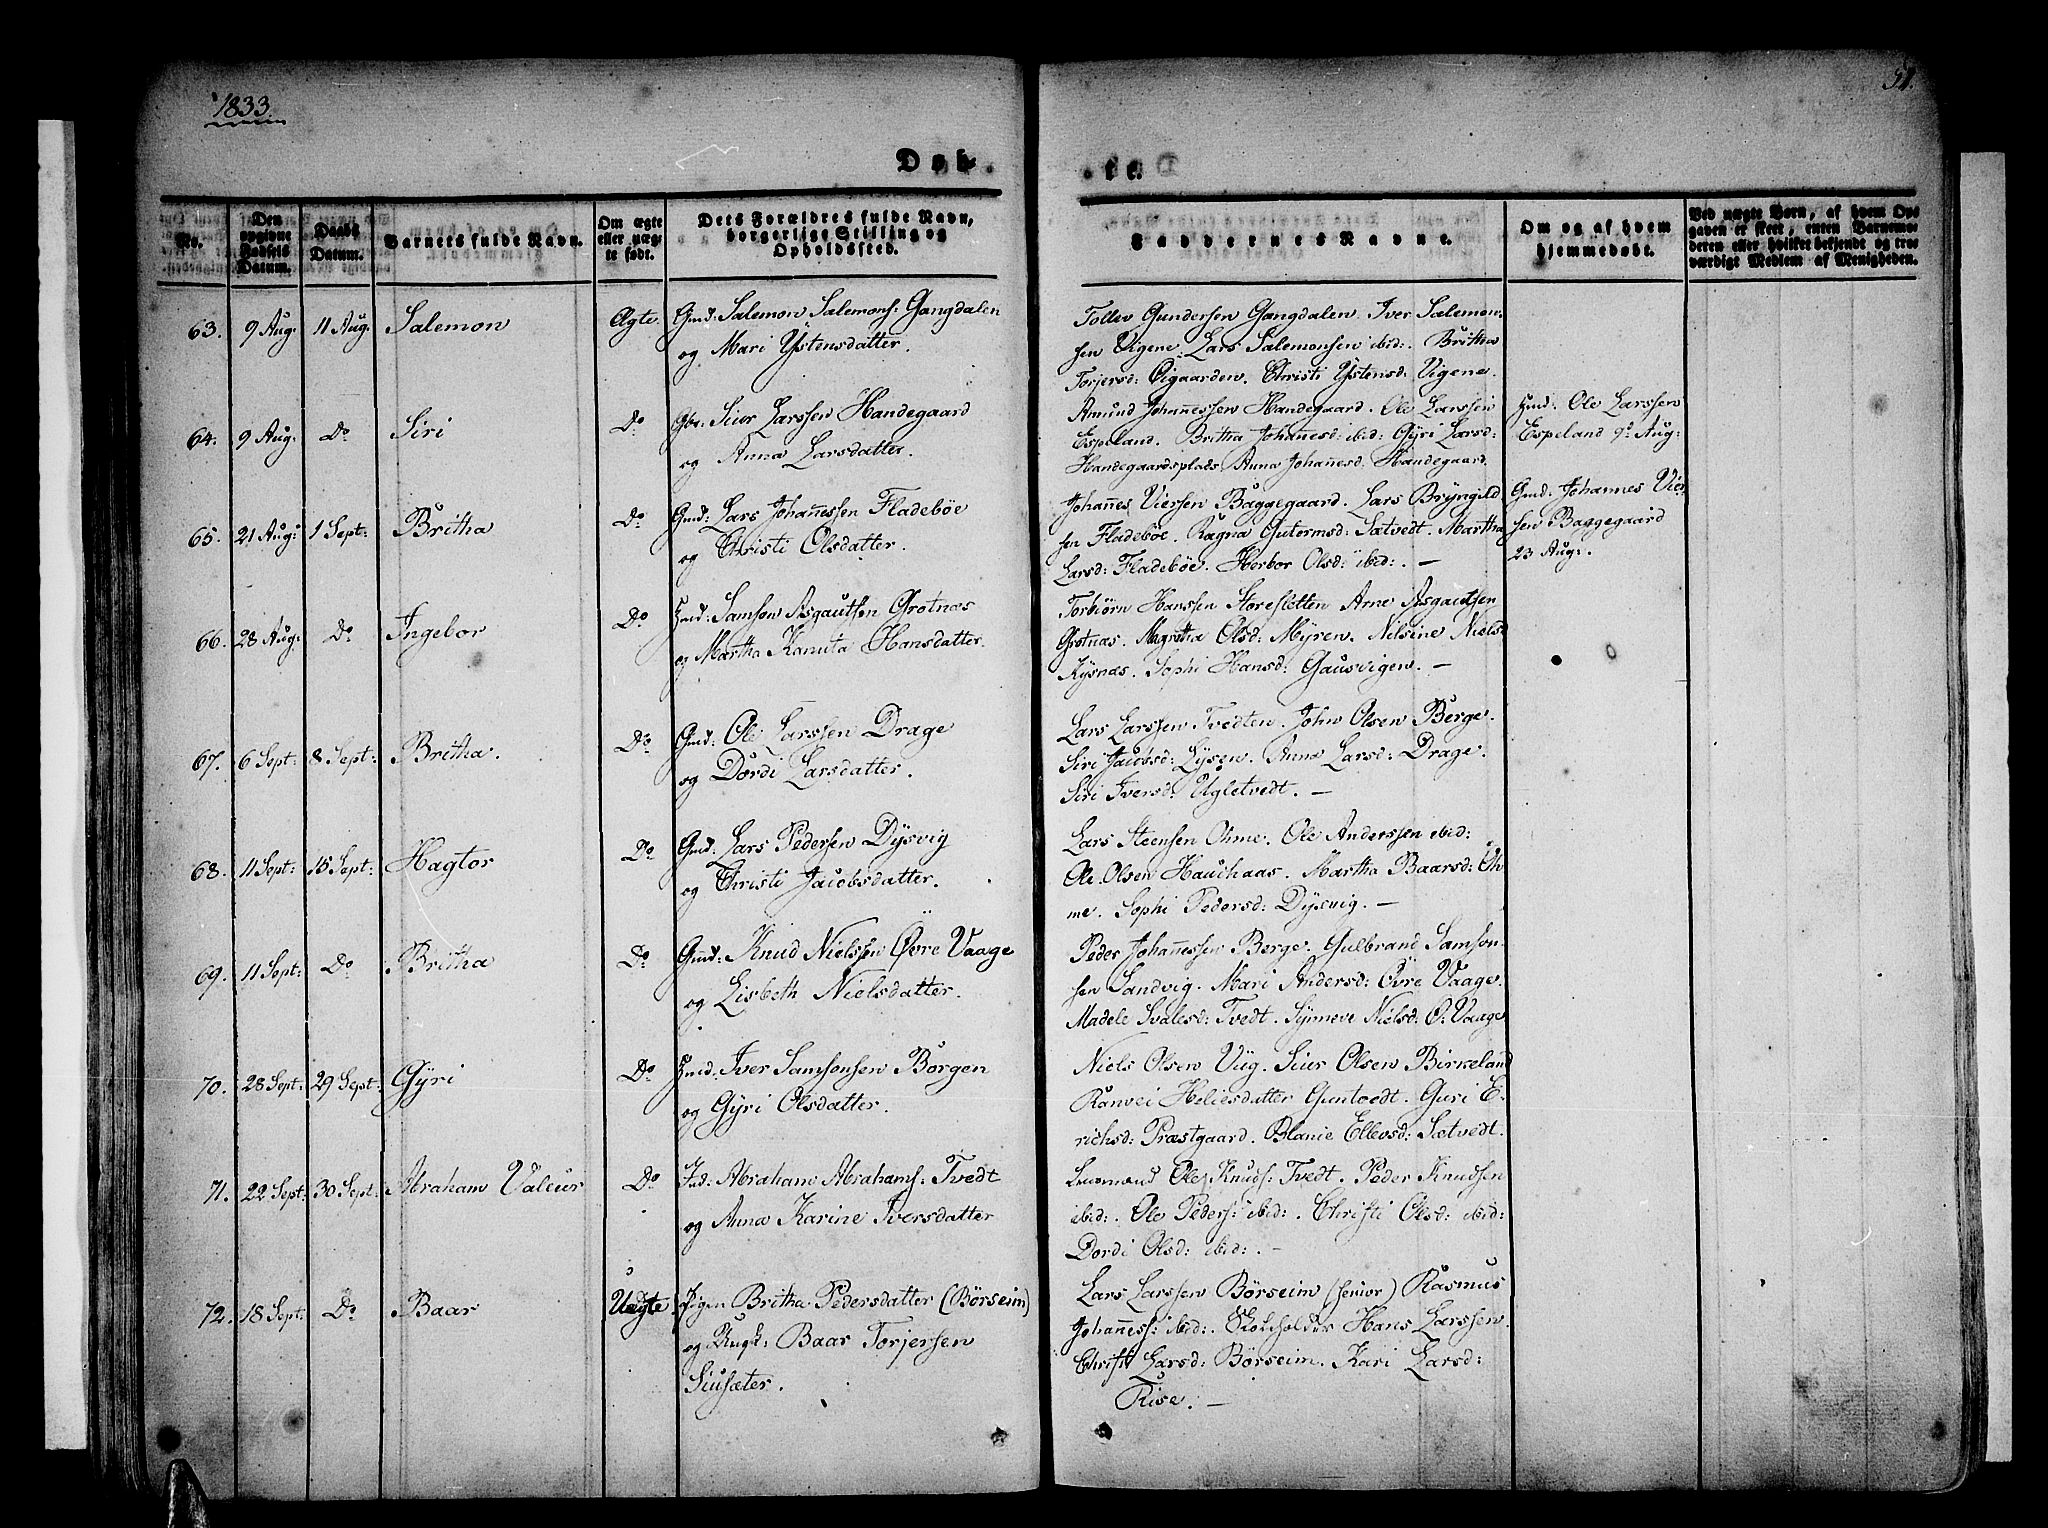 1833.
51.
Døb-
te.
No.
Den opgivne Fødsels Datum.
Daabs Datum.
Barnets fulde Navn.
Om ægte eller uægte født.
Dets Forældres fulde Navn, borgerlige Stilling og Opholdssted.
Faddernes Navne.
Om og af hvem hjemmedøbt.
Ved uægte Børn, af hvem Opgaven er skeet, enten Barnemoderen eller hvilket bekjendt og troværdigt Medlem af Menigheden.
63. 9 Aug: 11 Aug: Salemon Ægte. Gmd: Salemon Salemons: Gangdalen
og Mari Ystensdatter.
Tollev Gundersen Gangdalen. Iver Salemon-
sen Vigene. Lars Salemonsen ibid:. Britha
Torjersd: Øigaarden. Christi Ystensd: Vigene.
64. 9 Aug: Do Siri Do Gbr: Siur Larssen Handegaard
og Anna Larsdatter.
Amund Johannessen Handegaard. Ole Larssen
Espeland. Britha Johanesd: ibid: Gyri Larsd:
Handegaardsplads. Anna Johanesd: Handegaard.
Hmd: Ole Larssen
Espeland 9de Aug:
65. 21 Aug: 1 Sept: Britha Do Gmd: Lars Johannessen Fladebøe
og Christi Olsdatter.
Johannes Viersen Baggegaard. Lars Bryngild-
sen Fladebøe. Ragna Gutormsd: Sætvedt. Martha
Larsd: Fladebøe. Herbor Olsd: ibid:. —
Gmd: Johannes Vier-
sen Baggegaard
23 Aug:.
66. 28 Aug: Do Ingebor Do Hmd: Samson Asgautsen Grotnæs
og Martha Kanuta Hansdatter.
Torbiörn Hanssen Storesletten Arne Asgautsen
Grotnæs. Magretha Olsd: Myren. Nilsine Nielsd
Rysnæs. Sophi Hansd: Gausvigen. —
67. 6 Sept: 8 Sept: Britha. Do Gmd: Ole Larssen Drage
og Dordi Larsdatter.
Lars Larssen Tvedten. John Olsen Berge.
Siri Jacobsd: Lysen. Anna Larsd: Drage.
Siri Iversd: Ugletvedt. —
68. 11 Sept: 15 Sept: Hagtor Do Gmd: Lars Pedersen Dysvig
og Christi Jacobsdatter.
Lars Steensen Ohme. Ole Anderssen ibid:
Ole Olsen Hauchaas. Martha Baarsd: Oh-
me. Sophi Pedersd: Dysvig. —
69. 11 Sept: Do Britha Do Gmd: Knud Nielssen Övre Vaage
og Lisbeth Nielsdatter.
Peder Johannessen Berge. Gulbrand Samson-
sen Sandvig. Mari Andersd: Övre Vaage.
Madele Svalesd: Tvedt. Synneve Nielsd: Ö: Vaage
70. 28 Sept: 29 Sept: Gyri Do Hmd: Iver Samsonsen Borgen
og Gyri Olsdatter.
Niels Olsen Vüg. Siur Olsen Birkeland
Ranvei Heliesdatter Guntvedt. Guri E-
richsd: Præstgaard. Blanie Ellevsd: Sætvedt.
71. 22 Sept: 30 Sept: Abraham Valeur Do Ind: Abraham Abrahams: Tvedt
og Anna Karine Iversdatter
Ole Knuds: Tvedt. Peder Knudsen
ibid:. Ole Peders: ibid:. Christi Olsd: ibid:
Dordi Olsd: ibid:. —
72. 18 Sept: Do Baar Uægte Pigen Britha Pedersdatter (Börseim)
og Ungk: Baar Torjersen
Siusæter.
Lars Larssen Börseim (senior) Rasmus
Johaness: ibid:. Skoleholder Hans Larssen.
Christi Larsd: Börseim. Kari Larsd:
Rise. —